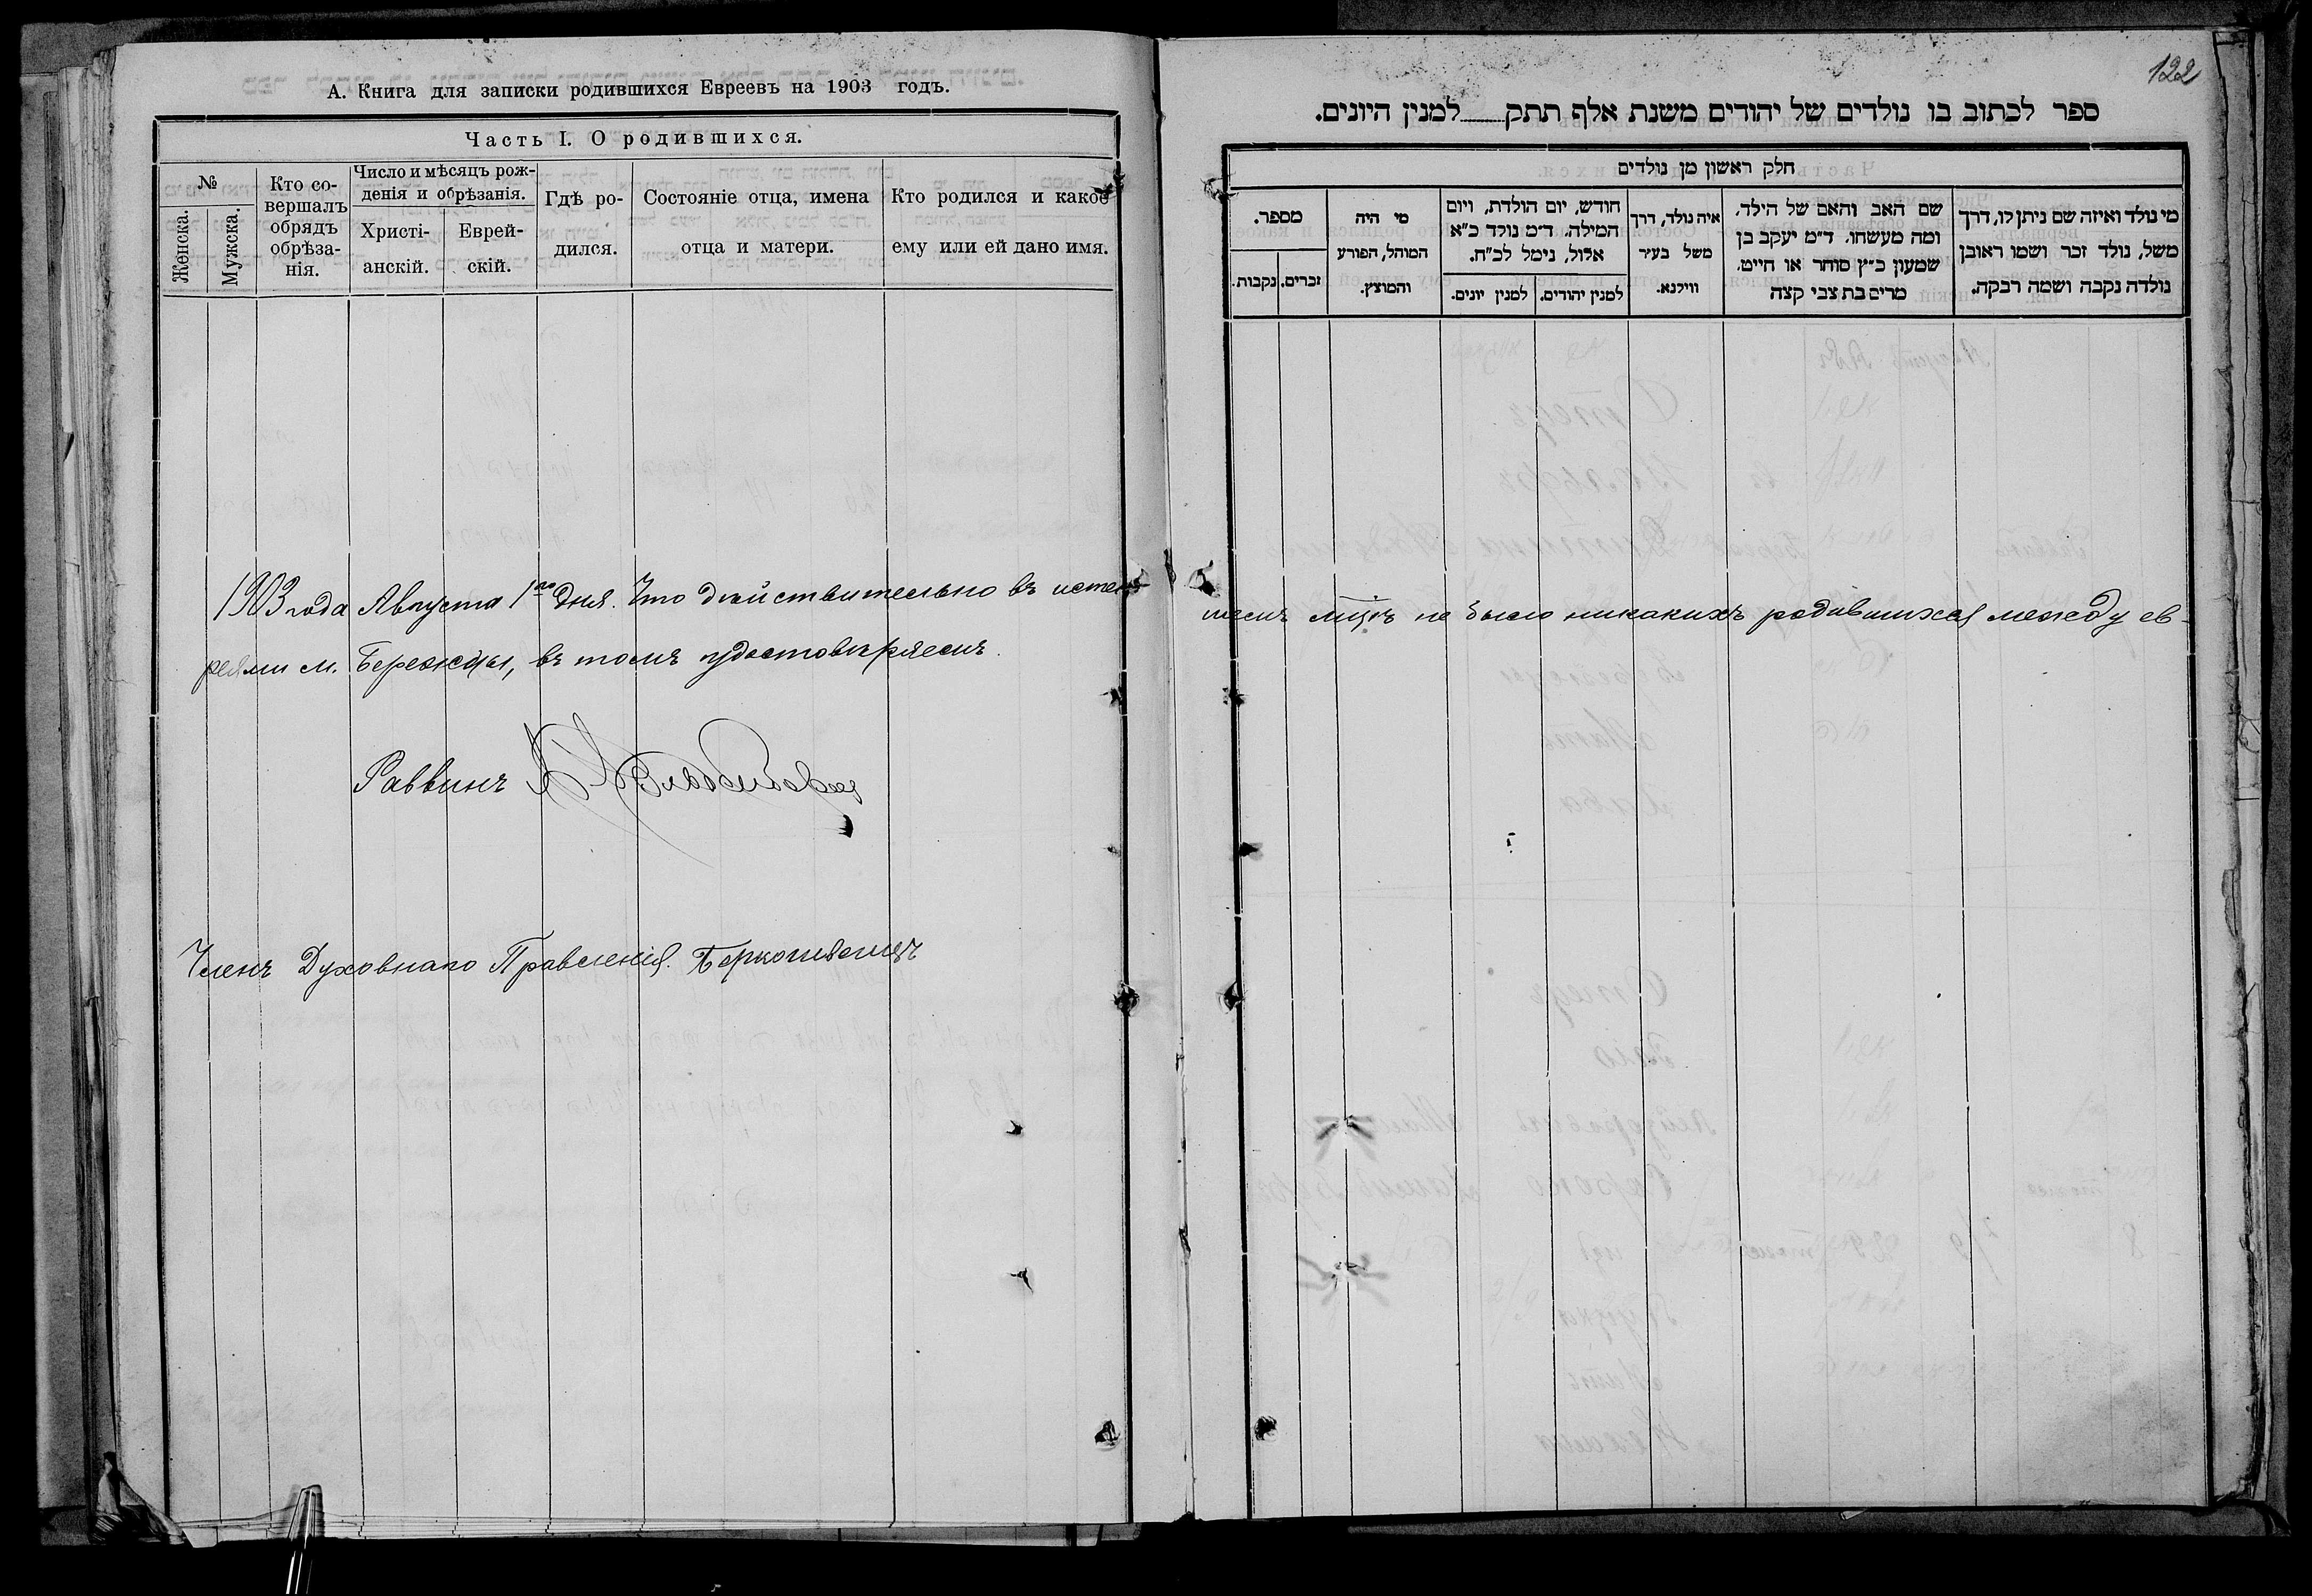 А. Книга для записки родившихся Евреевъ на 1903 годъ.
Часть I. О родившихся.
№
Женска.
Мужска.
Кто со-
вершалъ
обрядъ
обрѣза-
нія.
Число и мѣсяцъ рож-
денія и обрѣзанія.
Христі-
анскій.
Еврей-
скій.
Гдѣ ро-
дился.
Состояніе отца, имена
отца и матери.
Кто родился и какое
ему или ей дано имя.
1903 года Августа 1го дня. Что действительно въ истек-
реями м. Бережцы, въ томъ удостовѣряемъ.
Раввинъ
Членъ Духовнаго Правленія.
122
ספר לכתוב בו נולדים של יהודים משנת אלף תתק למנין היונים.
חלק ראשון מן נולדים
מספר.
זכרים.
נקבות.
מי היה
המוהל, הפורע
והמוצץ.
חודש, יום הולדת, ויום
המילה. ד״מ נולד כ״א
אלול, נימל לכ״ח.
למנין יונים.
למנין יהודים.
איה נולד, דרך
משל בעיר
ווילנא.
שם האב והאם של הילד,
ומה מעשהו. ד״מ יעקב בן
שמעון כ״ץ סוחר או חייט,
מרים בת צבי קצה
מי נולד ואיזה שם ניתן לו, דרך
משל, נולד זכר ושמו ראובן
נולדה נקבה ושמה רבקה.
шемъ мцѣ не было никакихъ родившихся между ев-